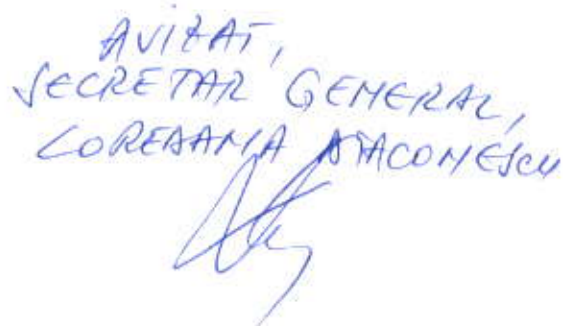 AVIZAT,
SECRETAR GENERAL,
LOREDANA DIACONESCU